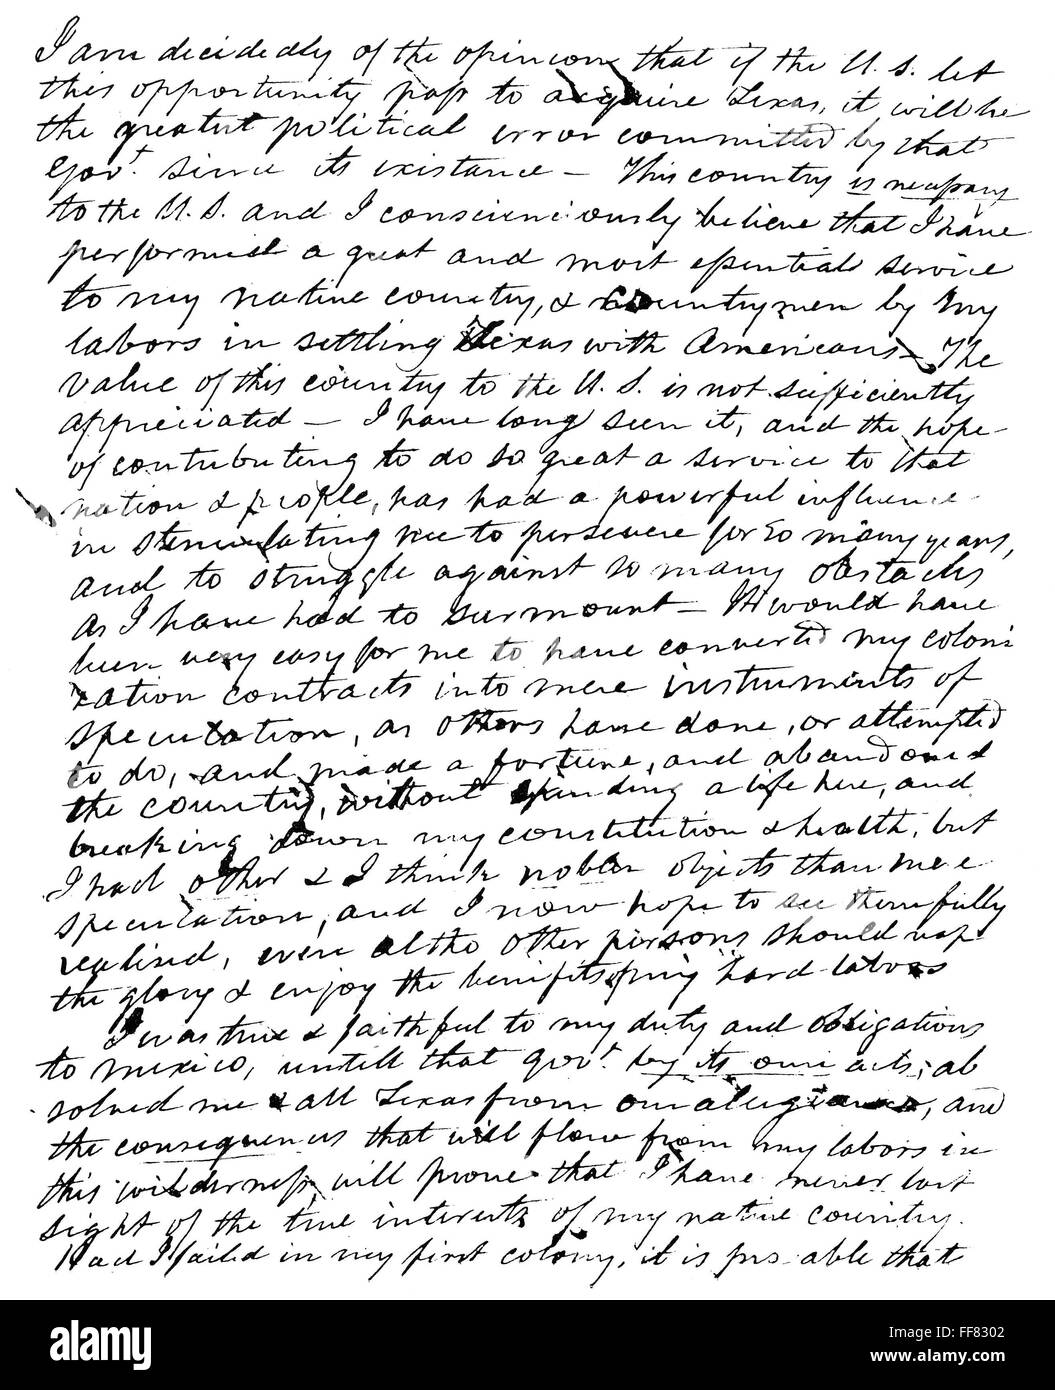 I am decidedly of the opinion that if the U. S. let
this opportunity pass to acquire Texas, it will be
the greatest political error committed by that
Govt. since its existance — This country is necessary
to the U. S. and I conscienciously believe that I have
performed a great and most essential service
to my native country, & countrymen by my
labors in settling Texas with Americans — The
value of this country to the U. S. is not sufficiently
appreciated — I have long seen it, and the hope
of contributing to do so great a service to that
nation & people, has had a powerful influence
in stimulating me to persevere for so many years,
and to struggle against so many obstacles
as I have had to surmount — It would have
been very easy for me to have converted my coloni
zation contracts into mere instruments of
speculation, as others have done, or attempted
to do, and made a fortune, and abandoned
the country, without spending a life here, and
breaking down my constitution & health, but
I had other & I think nobler objects than mere
speculation, and I now hope to see them fully
realised, even altho other persons should reap
the glory & enjoy the benifits of my hard labors
I was true & faithful to my duty and obligations
to mexico, untill that govt. by its own acts, ab
solved me & all Texas from our alegiance, and
the consequences that will flow from my labors in
this wilderness, will prove that I have never lost
sight of the true interests of my native country.
Had I failed in my first colony, it is pro able that
alamy
Image ID: FF8302
www.alamy.com